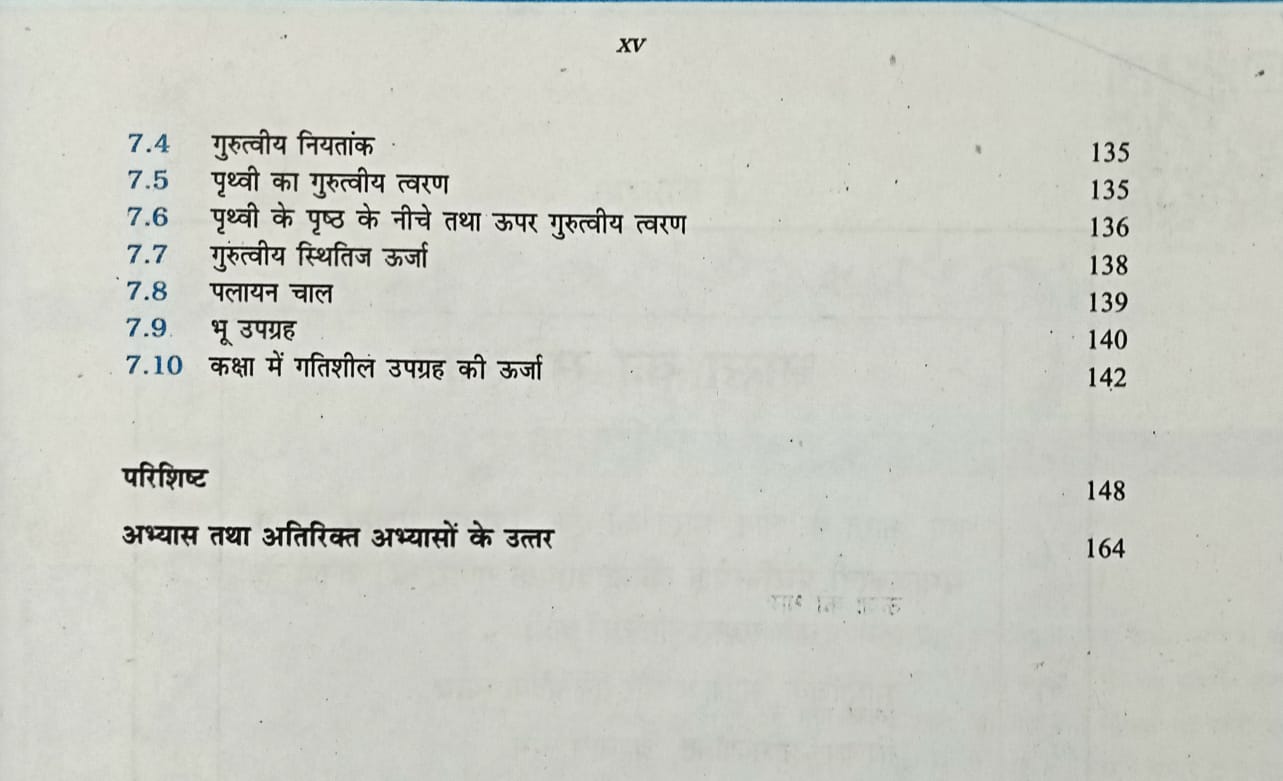 xv
7.4 गुरुत्वीय नियतांक 135
7.5 पृथ्वी का गुरुत्वीय त्वरण 135
7.6 पृथ्वी के पृष्ठ के नीचे तथा ऊपर गुरुत्वीय त्वरण 136
7.7 गुरुत्वीय स्थितिज ऊर्जा 138
7.8 पलायन चाल 139
7.9 भू उपग्रह 140
7.10 कक्षा में गतिशील उपग्रह की ऊर्जा 142
परिशिष्ट 148
अभ्यास तथा अतिरिक्त अभ्यासों के उत्तर 164